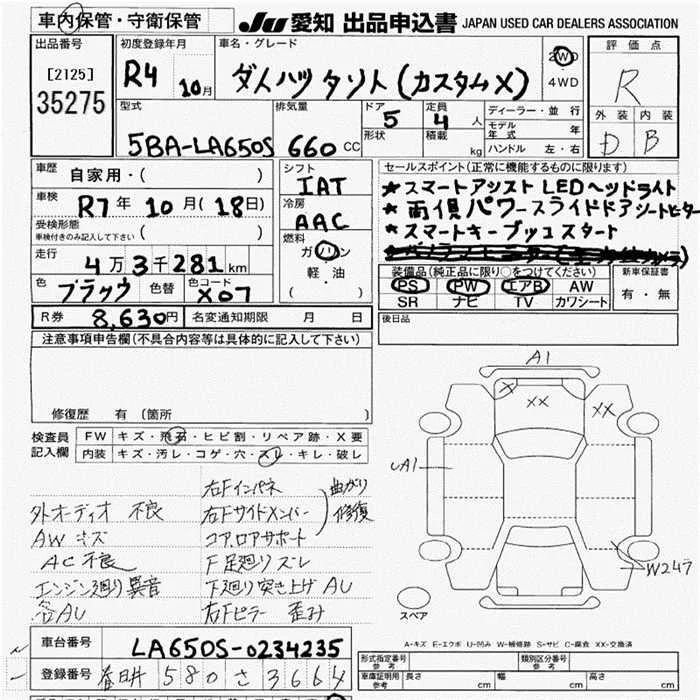 車内保管・守衛保管
JU 愛知 出品申込書 JAPAN USED CAR DEALERS ASSOCIATION
出品番号
[2125]
35275
初度登録年月
R4 10月
車名・グレード
ダイハツタント(カスタムX)
2WD
4WD
評価点
R
外装 内装
D B
型式
5BA-LA650S
排気量
660 cc
ドア
5
形状
定員
4 人
積載
kg
ディーラー・並行
モデル年式 年
ハンドル 左・右
車歴
自家用・( )
車検
R7年10月(18日)
受検形態
車検付きのみ記入して下さい ( )
走行
4万3千281km
色
ブラック
色替
色コード
X07
シフト
IAT
冷房
AAC
燃料
ガソリン
軽油
( )
セールスポイント(正常に機能するものに限ります)
★スマートアシスト LEDヘッドライト
★両側パワースライドドア シートヒター
★スマートキープッシュスタート
装備品(純正品に限り○をつけてください)
PS PW エアB AW
SR ナビ TV カワシート
新車保証書
有・無
R券 8,630円
名変通知期限 月 日
後日品
注意事項申告欄(不具合内容等は具体的に記入して下さい)
修復歴 有(箇所 )
検査員記入欄
FW キズ・飛石・ヒビ割・リペア跡・X要
内装 キズ・汚レ・コゲ・穴・スレ・キレ・破レ
外オーディオ 不良
AW キズ
AC不良
エンジン廻り異音
各AU
右Fインパネ
右Fサイドメンバー
コア,ロアサポート
曲がり
修復
F足廻りズレ
下廻り突き上げ AU
右Fピラー 歪み
A1
X
XX
XX
UA1
W247
スペア
A-キズ E-エクボ U-凹み W-補修跡 S-サビ C-腐食 XX-交換済
車台番号
LA650S-0234235
登録番号
春日井 580 さ 3664
形式指定番号
参考
類別区分番号
参考
車庫証明用
参考
長さ cm
幅 cm
高さ cm